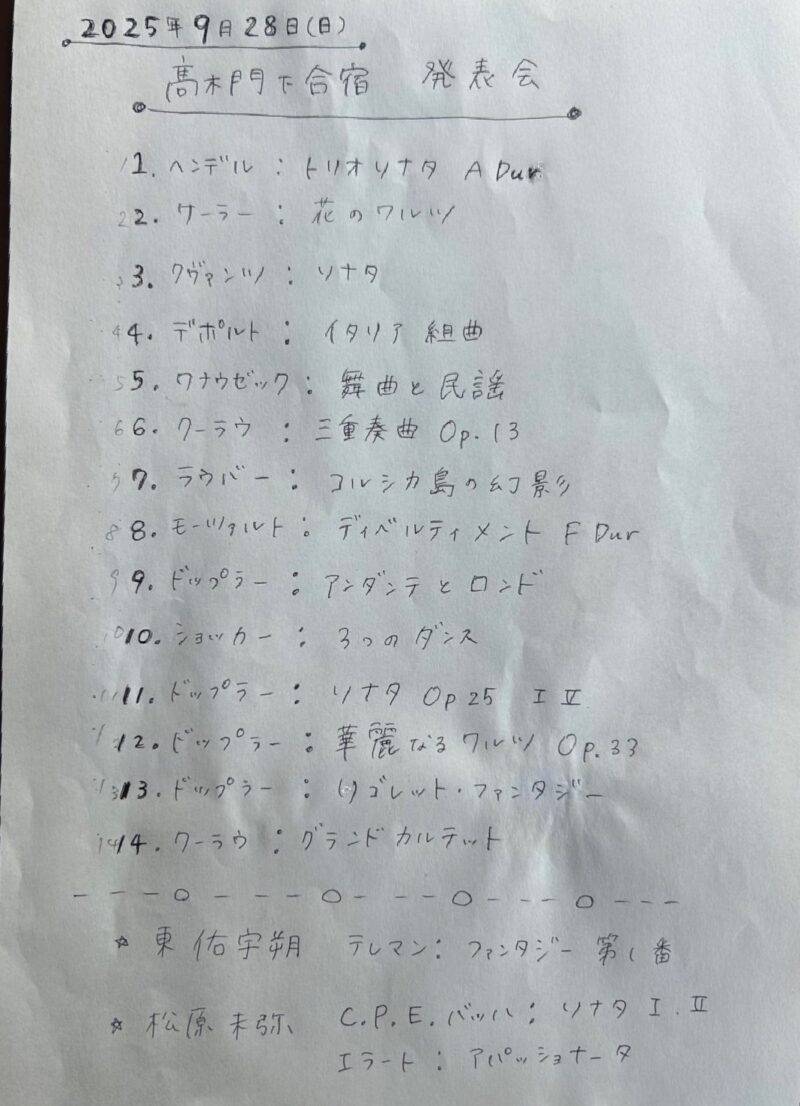 2025年9月28日(日)
髙木門下合宿 発表会
1. ヘンデル : トリオソナタ A Dur
2. ケーラー : 花のワルツ
3. クヴァンツ : ソナタ
4. デポルト : イタリア 組曲
5. ワナウゼック : 舞曲と民謡
6. クーラウ : 三重奏曲 Op.13
7. ラウバー : コルシカ島の幻影
8. モーツァルト : ディベルティメント F Dur
9. ドップラー : アンダンテとロンド
10. ショッカー : 3つのダンス
11. ドップラー : ソナタ Op 25 I IV
12. ドップラー : 華麗なるワルツ Op.33
13. ドップラー : リゴレット・ファンタジー
14. クーラウ : グランドカルテット
☆ 東 佑宇朔 テレマン: ファンタジー 第1番
☆ 松原 未弥 C.P.E.バッハ: ソナタ I.II
エラート : アパッショナータ